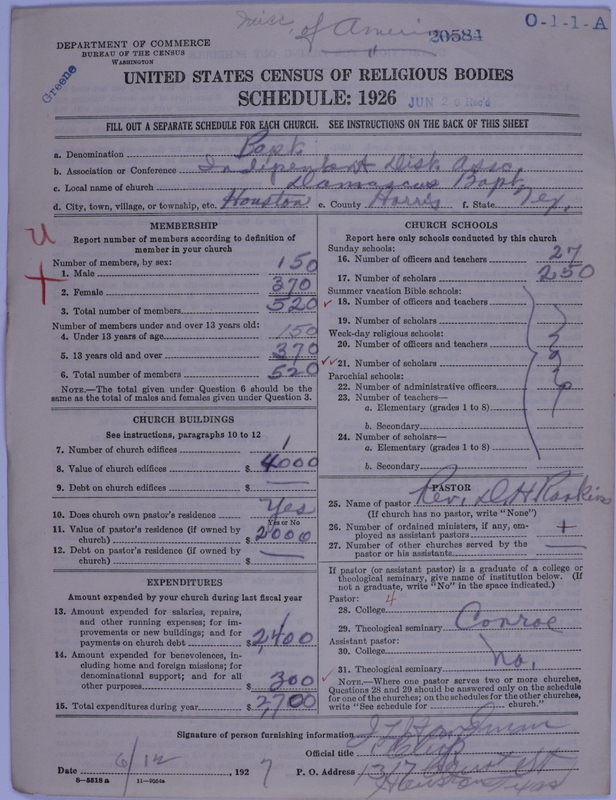 Miss. of America
"
20584
O-1-1-A
DEPARTMENT OF COMMERCE
BUREAU OF THE CENSUS
WASHINGTON
Greene
UNITED STATES CENSUS OF RELIGIOUS BODIES
SCHEDULE: 1926
JUN 20 Rec'd
FILL OUT A SEPARATE SCHEDULE FOR EACH CHURCH. SEE INSTRUCTIONS ON THE BACK OF THIS SHEET
a. Denomination Bapt.
b. Association or Conference Indipentant Dist. Asso.
c. Local name of church Damascus Bapt.
d. City, town, village, or township, etc. Houston e. County Harris f. State Tex.
MEMBERSHIP
Report number of members according to definition of member in your church
Number of members, by sex:
1. Male 150
2. Female 370
3. Total number of members 520
Number of members under and over 13 years old:
4. Under 13 years of age 150
5. 13 years old and over 370
6. Total number of members 520
NOTE.—The total given under Question 6 should be the same as the total of males and females given under Question 3.
CHURCH BUILDINGS
See instructions, paragraphs 10 to 12
7. Number of church edifices 1
8. Value of church edifices $ 4000
9. Debt on church edifices $ —
10. Does church own pastor's residence Yes
Yes or No
11. Value of pastor's residence (if owned by church) $ 2000
12. Debt on pastor's residence (if owned by church) $ —
EXPENDITURES
Amount expended by your church during last fiscal year
13. Amount expended for salaries, repairs, and other running expenses; for improvements or new buildings; and for payments on church debt $ 2,400
14. Amount expended for benevolences, including home and foreign missions; for denominational support; and for all other purposes $ 300
15. Total expenditures during year $ 2,700
CHURCH SCHOOLS
Report here only schools conducted by this church
Sunday schools:
16. Number of officers and teachers 27
17. Number of scholars 250
Summer vacation Bible schools:
18. Number of officers and teachers
19. Number of scholars
Week-day religious schools:
20. Number of officers and teachers
21. Number of scholars
Parochial schools:
22. Number of administrative officers
23. Number of teachers—
a. Elementary (grades 1 to 8)
b. Secondary
24. Number of scholars—
a. Elementary (grades 1 to 8)
b. Secondary
PASTOR
25. Name of pastor Rev. D. H. Rankins
(If church has no pastor, write "None")
26. Number of ordained ministers, if any, employed as assistant pastors +
27. Number of other churches served by the pastor or his assistants —
If pastor (or assistant pastor) is a graduate of a college or theological seminary, give name of institution below. (If not a graduate, write "No" in the space indicated.)
Pastor: 4
28. College
29. Theological seminary Conroe
Assistant pastor:
30. College
No.
31. Theological seminary
NOTE.—Where one pastor serves two or more churches, Questions 28 and 29 should be answered only on the schedule for one of the churches; on the schedules for the other churches, write "See schedule for church."
Signature of person furnishing information
Official title Clerk
Date 6/12 1927 P. O. Address 1317
Houston Texas
8—5518a 11—9554a